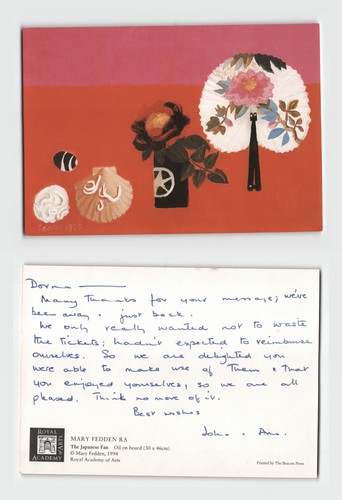 Fedden 1993
Dorma —
Many Thanks for your message; we've
been away & just back.
We only really wanted not to waste
the tickets; hadn't expected to reimburse
ourselves. So we are delighted you
were able to make use of Them & that
you enjoyed yourselves, so we are all
pleased. Think no more of it.
Best wishes
John & Ann.
ROYAL
ACADEMY
OF ARTS
MARY FEDDEN RA
The Japanese Fan Oil on board (30 x 46cm)
© Mary Fedden, 1994
Royal Academy of Arts
Printed by The Beacon Press